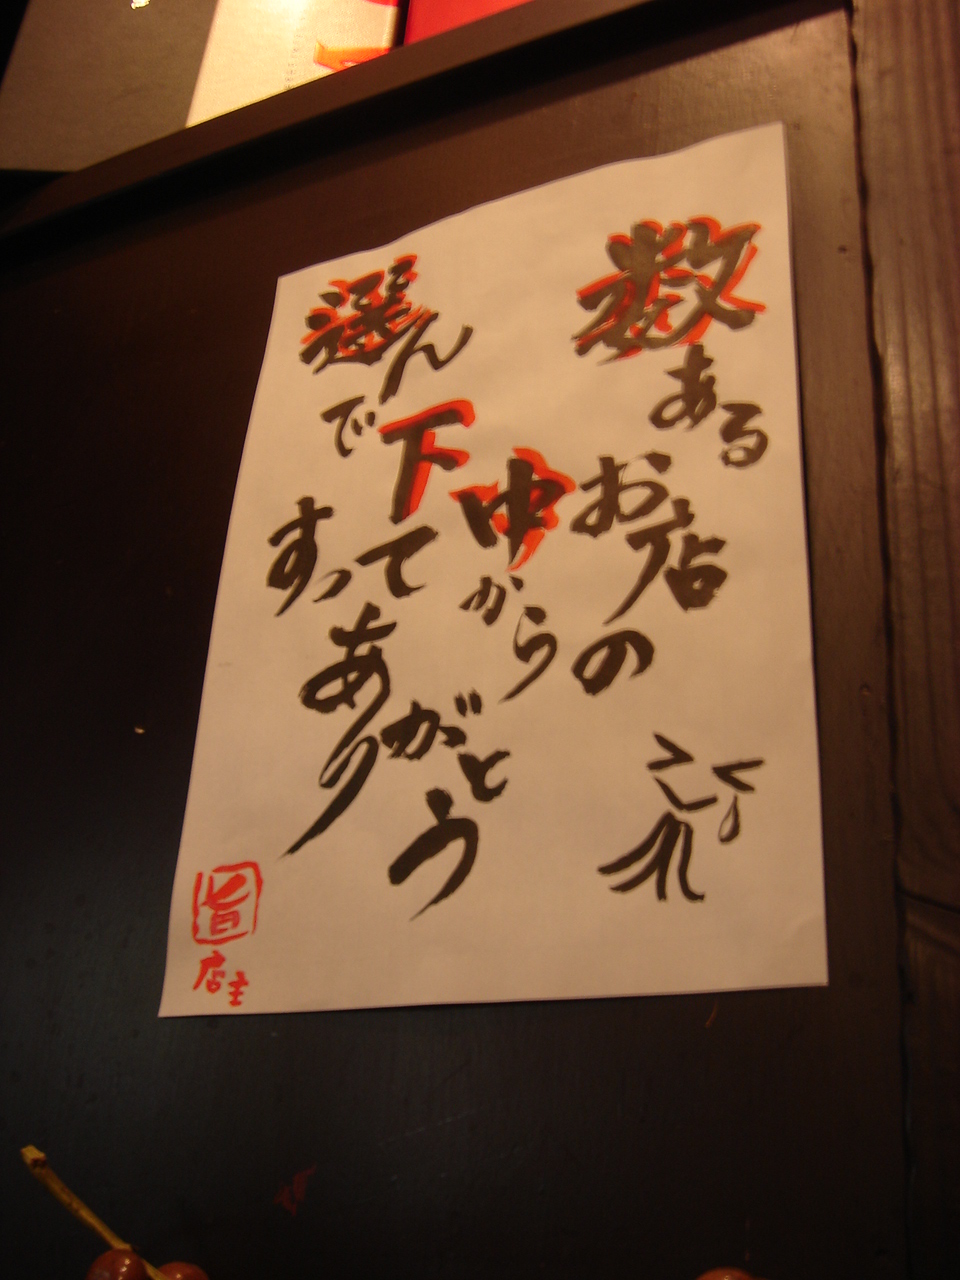 数ある
お店の
中から
選んで
下すって
ありがとう
旨
店主